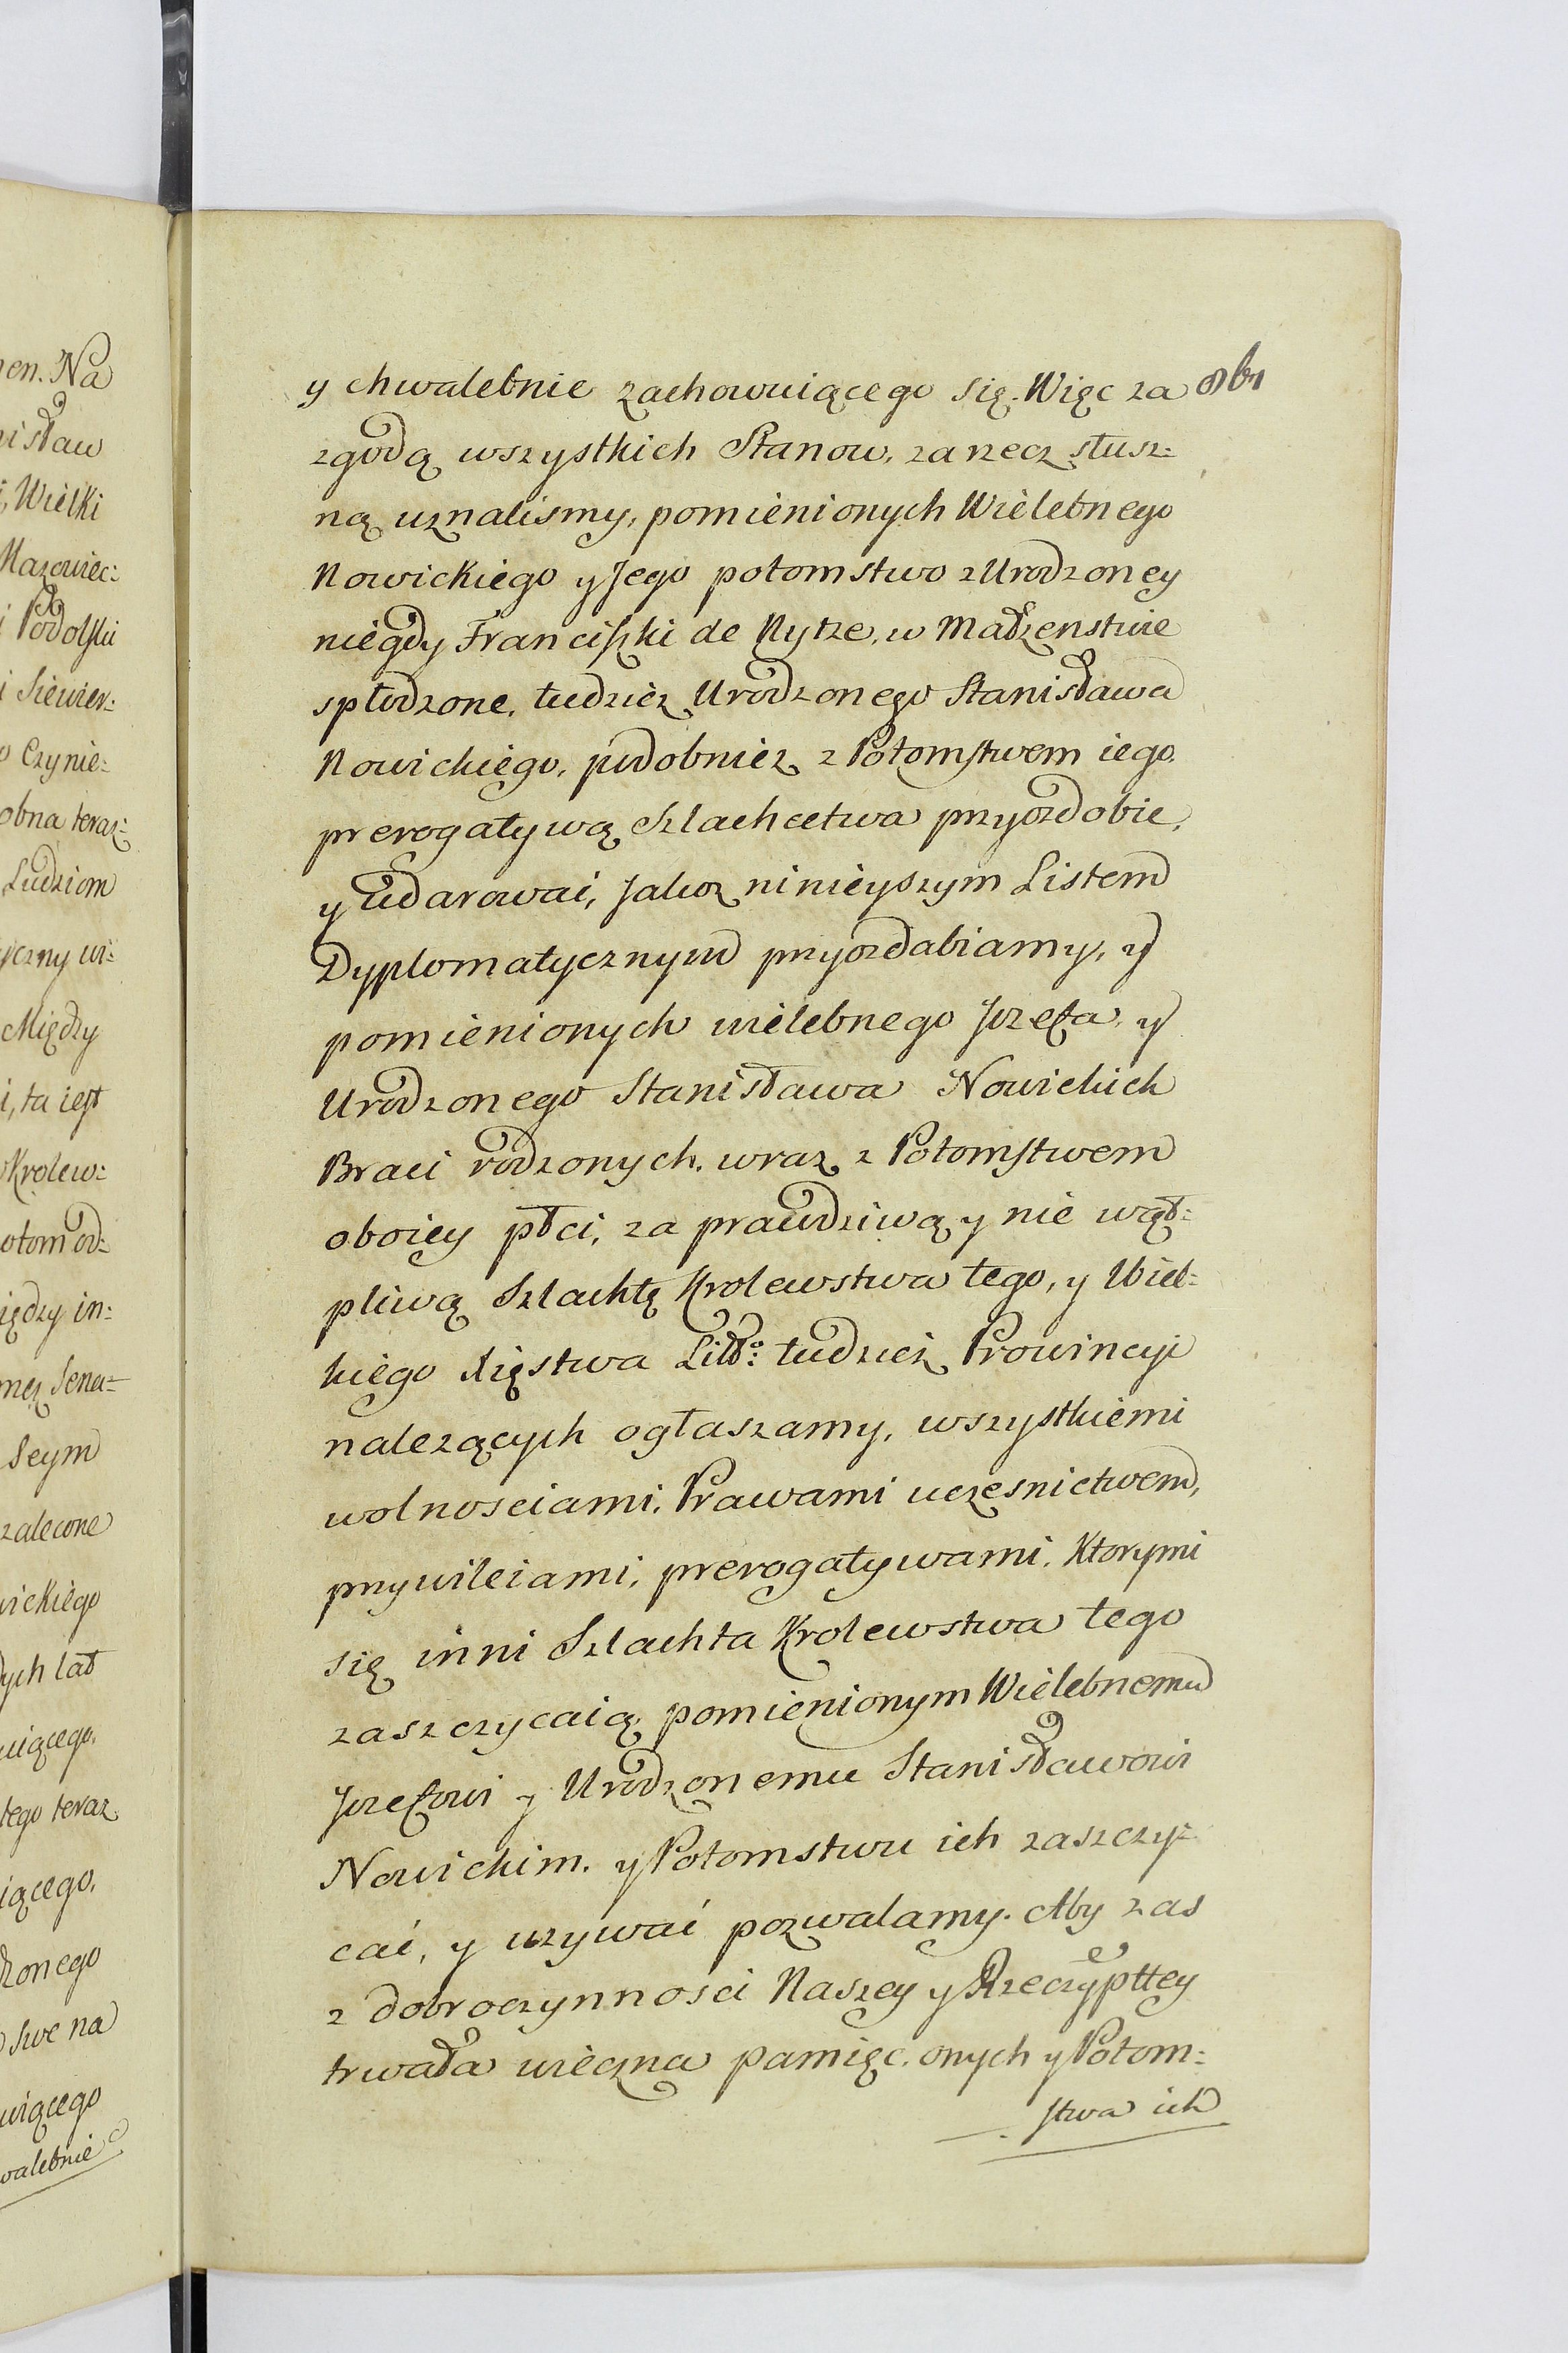 en. Na
isław
i, Wielki
Mazowiec:
i Podolski
i Siewier:
o Czynie:
obna teraz:
Ludziom
yczny wi:
Między
i, ta iest
Krolew:
otom od:
iędzy in:
męz Sena=
Seym
zalecone
wickiego
ych lat
uiącego.
tego teraz
iącego.
dzonego
swe na
wiącego
walebnie
y chwalebnie zachowuiącego się. Więc za
zgodą wszystkich Stanow, za rzecz słusz:
ną uznalismy, pomienionych Wielebnego
Nowickiego y Jego potomstwo z Urodzoney
niegdy Franciszki de Nytze, w Małzenstwie
spłodzone, tudziez Urodzonego Stanisława
Nowickiego, podobniez z Potomstwem iego.
prerogatywą Szlachcetwa przyozdobic,
y udarowaċ, Jakoz ninieyszym Listem
Dyplomatycznym przyozdabiamy, y
pomienionych wielebnego Jozefa, y
Urodzonego Stanisława Nowickich
Braci rodzonych, wraz z Potomstwem
oboiey płci, za prawdziwą y nie wąt:
pliwą Szlachtę Krolewstwa tego, y Wiel:
kiego Xięstwa Litt:o tudziez Prowincyi
nalezących ogłaszamy, wszystkiemi
wolnosciami, Prawami uczesnictwem,
przywileiami, prerogatywami, Ktorymi
się inni Szlachta Krolewstwa tego
zaszczycaią, pomienionym Wielebnemu
Jozefowi y Urodzonemu Stanisławowi
Nowickim, y Potomstwu ich zaszczy=
caċ, y uzywaċ pozwalamy. Aby zas
z dobroczynnosci Naszey y Rzeczypttey
trwała wieczna pamięc, onych y Potom:
stwa ich